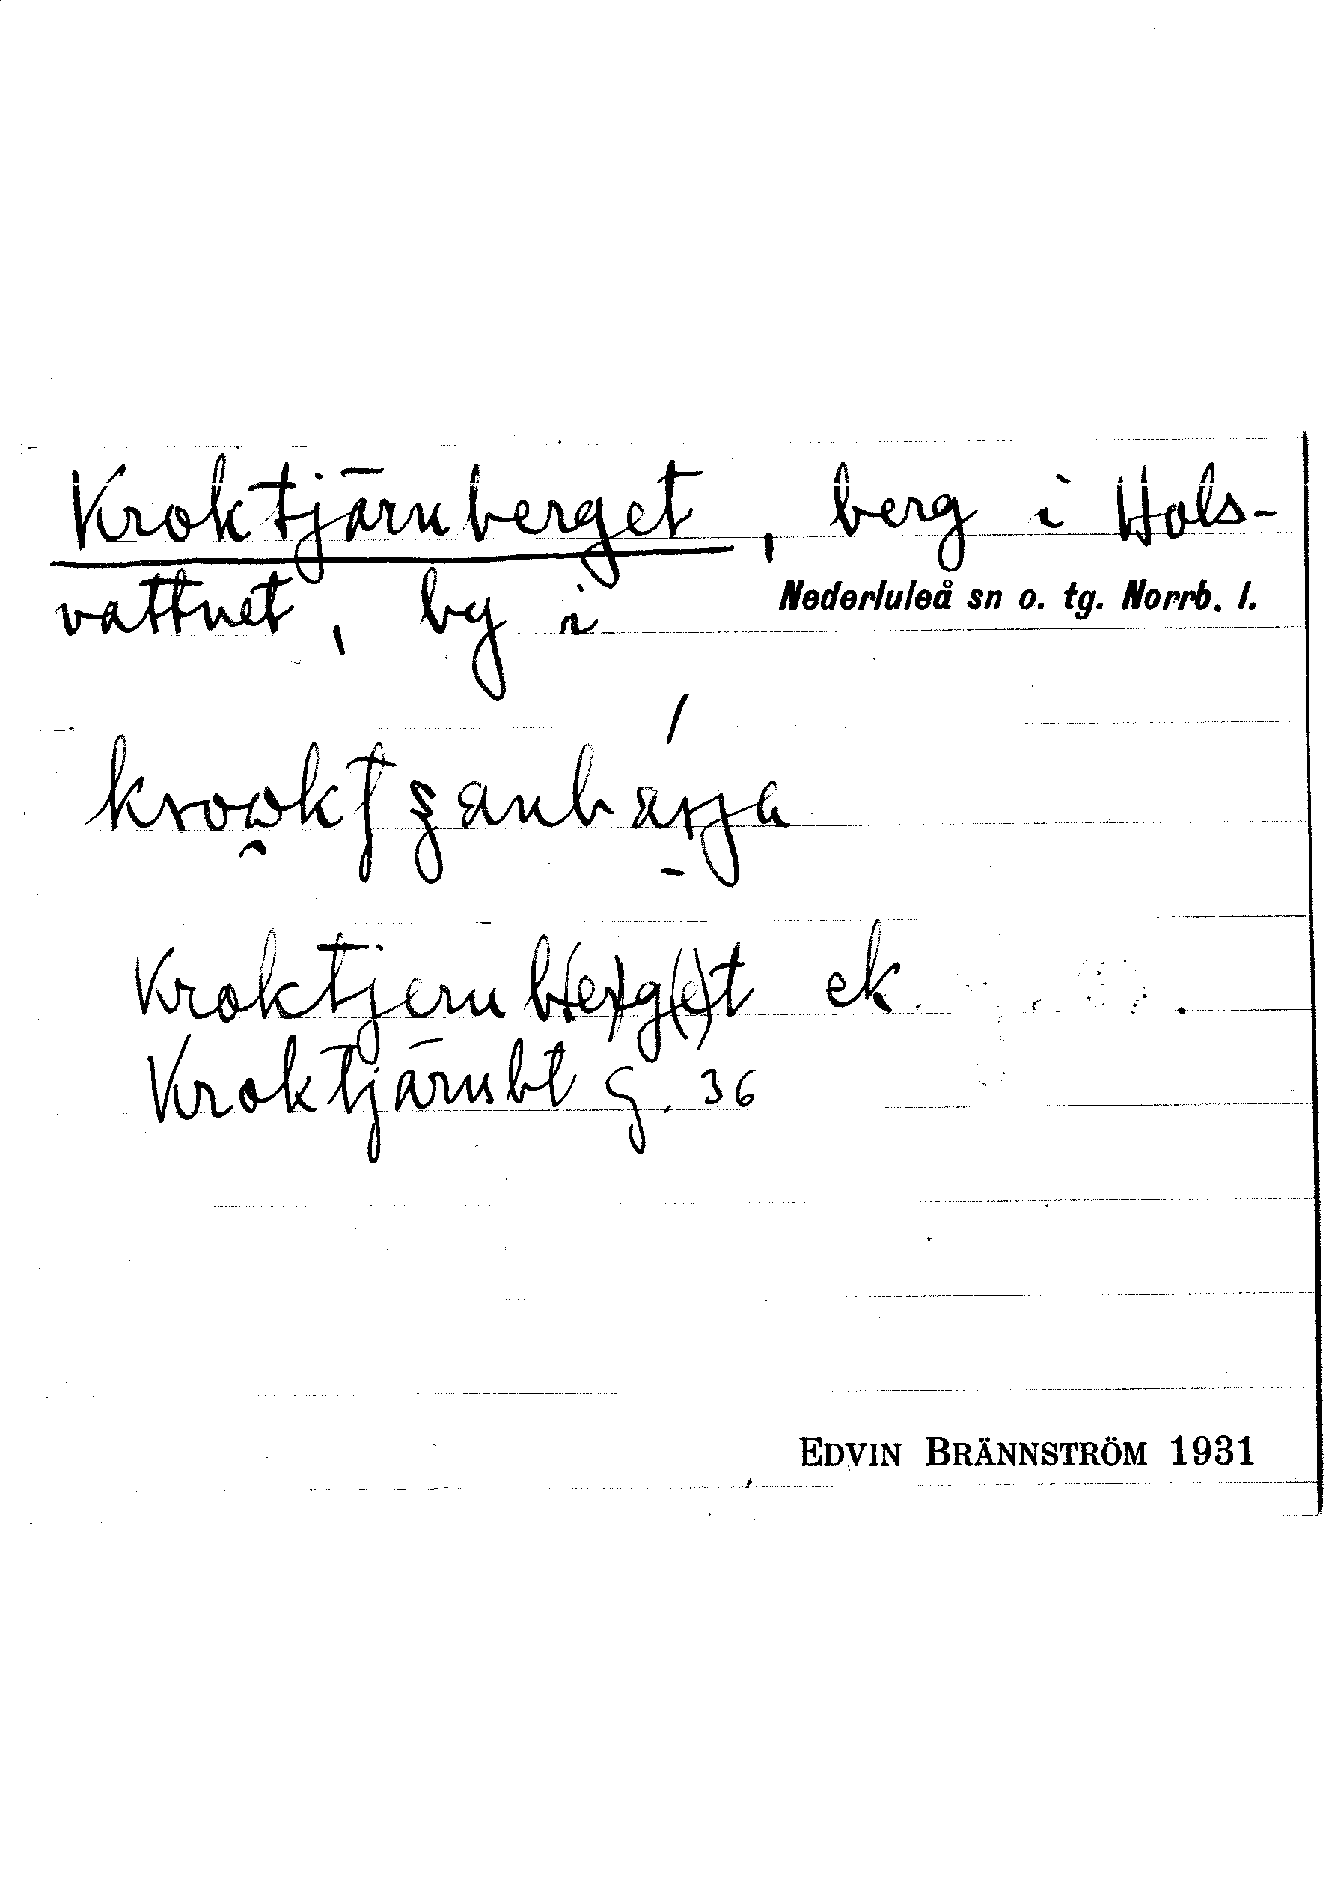 Kroktjärnberget, berg i Hols-
vattnet, by i Nederluleå sn o. tg. Norrb. l.
Kroktjernb(er)g(e)t ek.
Kroktjärnbt G. 36
EDVIN BRÄNNSTRÖM 1931